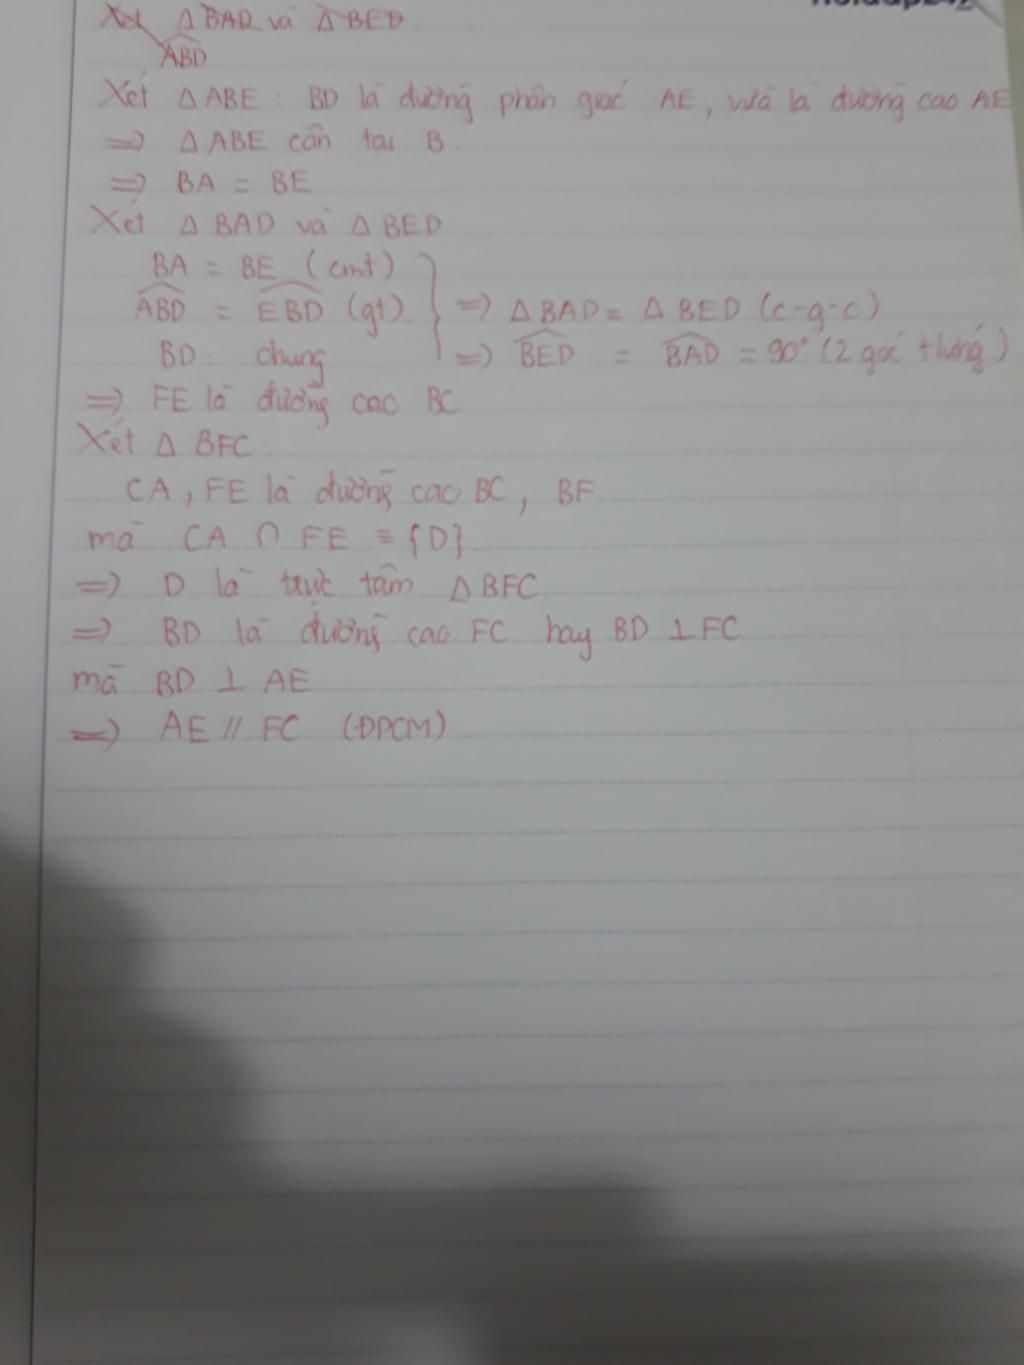 Xét Δ BAD và Δ BED
ABD
Xét Δ ABE : BD là đường phân giác AE, vừa là đường cao AE
=> Δ ABE cân tại B
=> BA = BE
Xét Δ BAD và Δ BED
BA = BE (cmt)
ABD = EBD (gt) => Δ BAD = Δ BED (c-g-c)
BD : chung => BED = BAD = 90° (2 góc tướng)
=> FE là đường cao BC
Xét Δ BFC
CA, FE là đường cao BC, BF
mà CA ∩ FE ≡ {D}
=> D là trực tâm Δ BFC
=> BD là đường cao FC hay BD ⊥ FC
mà BD ⊥ AE
=> AE // FC (ĐPCM)